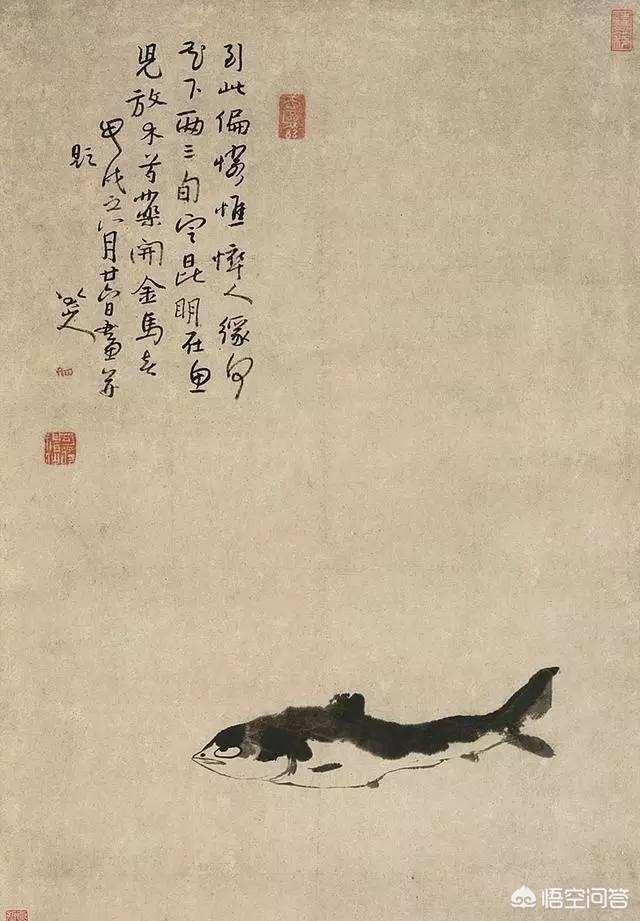 到此偏憐憔悴人緣何
花下兩三旬定昆明在魚
兒放木芍藥開金馬春
甲戌之月廿六日畫并
題
八大山人
悟空问答